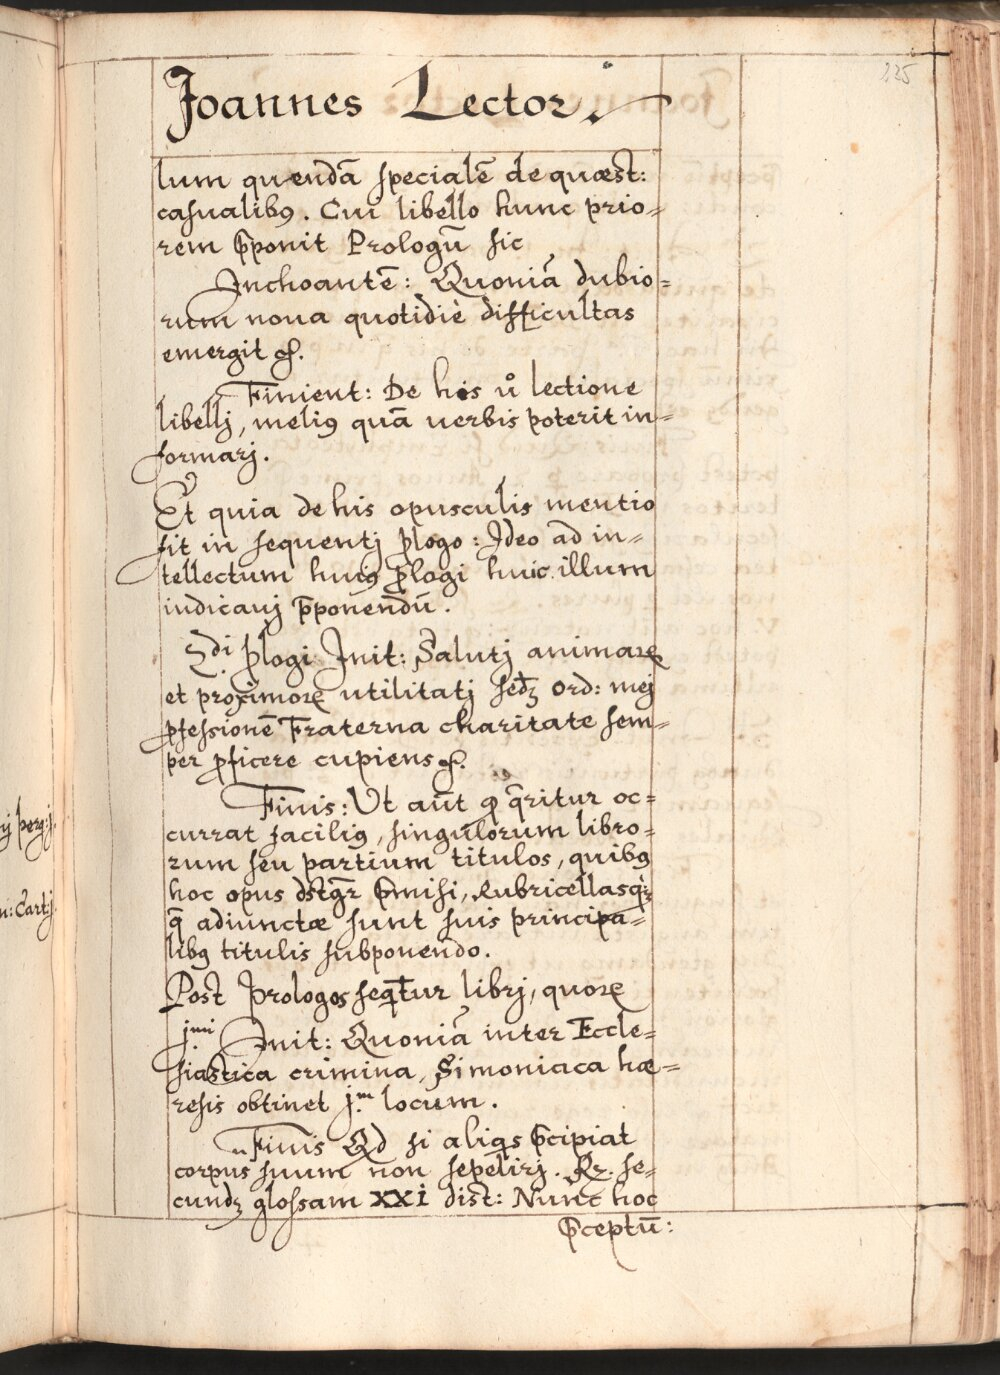 225
Joannes Lector.
lum quendã specialẽ de quæst:
casualibꝰ. Cui libello hunc prio=
rem p̃ponit Prologũ sic
Inchoantẽ: Quoniã dubio=
rum noua quotidiè difficultas
emergit &.
Finient: De his u° lectione
libellj, meliꝰ quã uerbis poterit in=
formarj.
Et quia de his opusculis mentio
fit in sequentj ꝓlogo: Ideo ad in=
tellectum huiꝰ ꝓlogi huic illum
iudicauj p̃ponendũ.
2di ꝓlogi Init: Salutj animaꝝ
et proximoꝝ utilitatj sedꝫ ord: mej
ꝓfessionẽ Fraterna charitate sem=
per ꝓficere cupiens &.
Finis: Ut aũt qͩ q̃ritur oc=
currat faciliꝰ, singulorum libro=
rum seu partium titulos, quibꝰ
hoc opus dstgr̃ p̃misi, Rubricellasqꝫ
q̃ adiunctæ sunt suis principa=
libꝰ titulis subponendo.
Post Prologos seqũtur librj, quoꝝ
jmi Init: Quoniã inter Eccle=
siastica crimina, Simoniaca hæ=
resis obtinet j.m locum.
Finis Qd si aliqs p̃cipiat
corpus suum non sepelirj. Rz. se=
cundꝫ glossam XXi dist: Nunc hoc
p̃ceptũ:
ij perg:j.
n: Cartj.